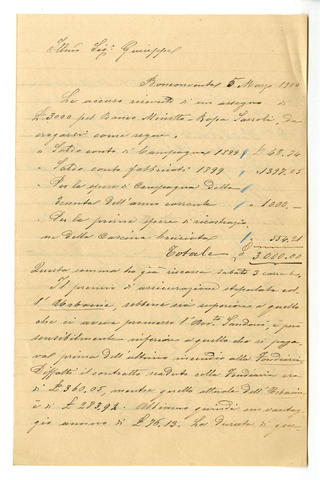 Illmo Sig. Giuseppe
5 Marzo 1900
Le accuso ricevuta di un assegno di
£ 3000 pel Banco Minetto-
erogarsi come segue.
" Saldo conto di Campagna 1899 £ 48.74
" Saldo conto fabbricati 1899 " 1397.05
" Per le spese di Campagna della
Tenuta dell'anno corrente " 1000.—
" Per le prime spese di ricostruzio
ne della Cascina " 554.21
Totale £ 3,000.00
Questa somma ho già riscossa sabato 3 corrente.
Il premio d'assicurazione stipulato col
l', sebbene sia superiore a quello
che ci aveva promesso l'Avv., è pure
sensibilmente inferiore a quello che si paga
va prima dell'ultimo incendio alla
Diffatti il contratto scaduto colla era
di £ 360,05, mentre quello attuale dell'
è di £ 283,92. Abbiamo quindi un vantag
gio annuo di £ 76.13. La durata di que-